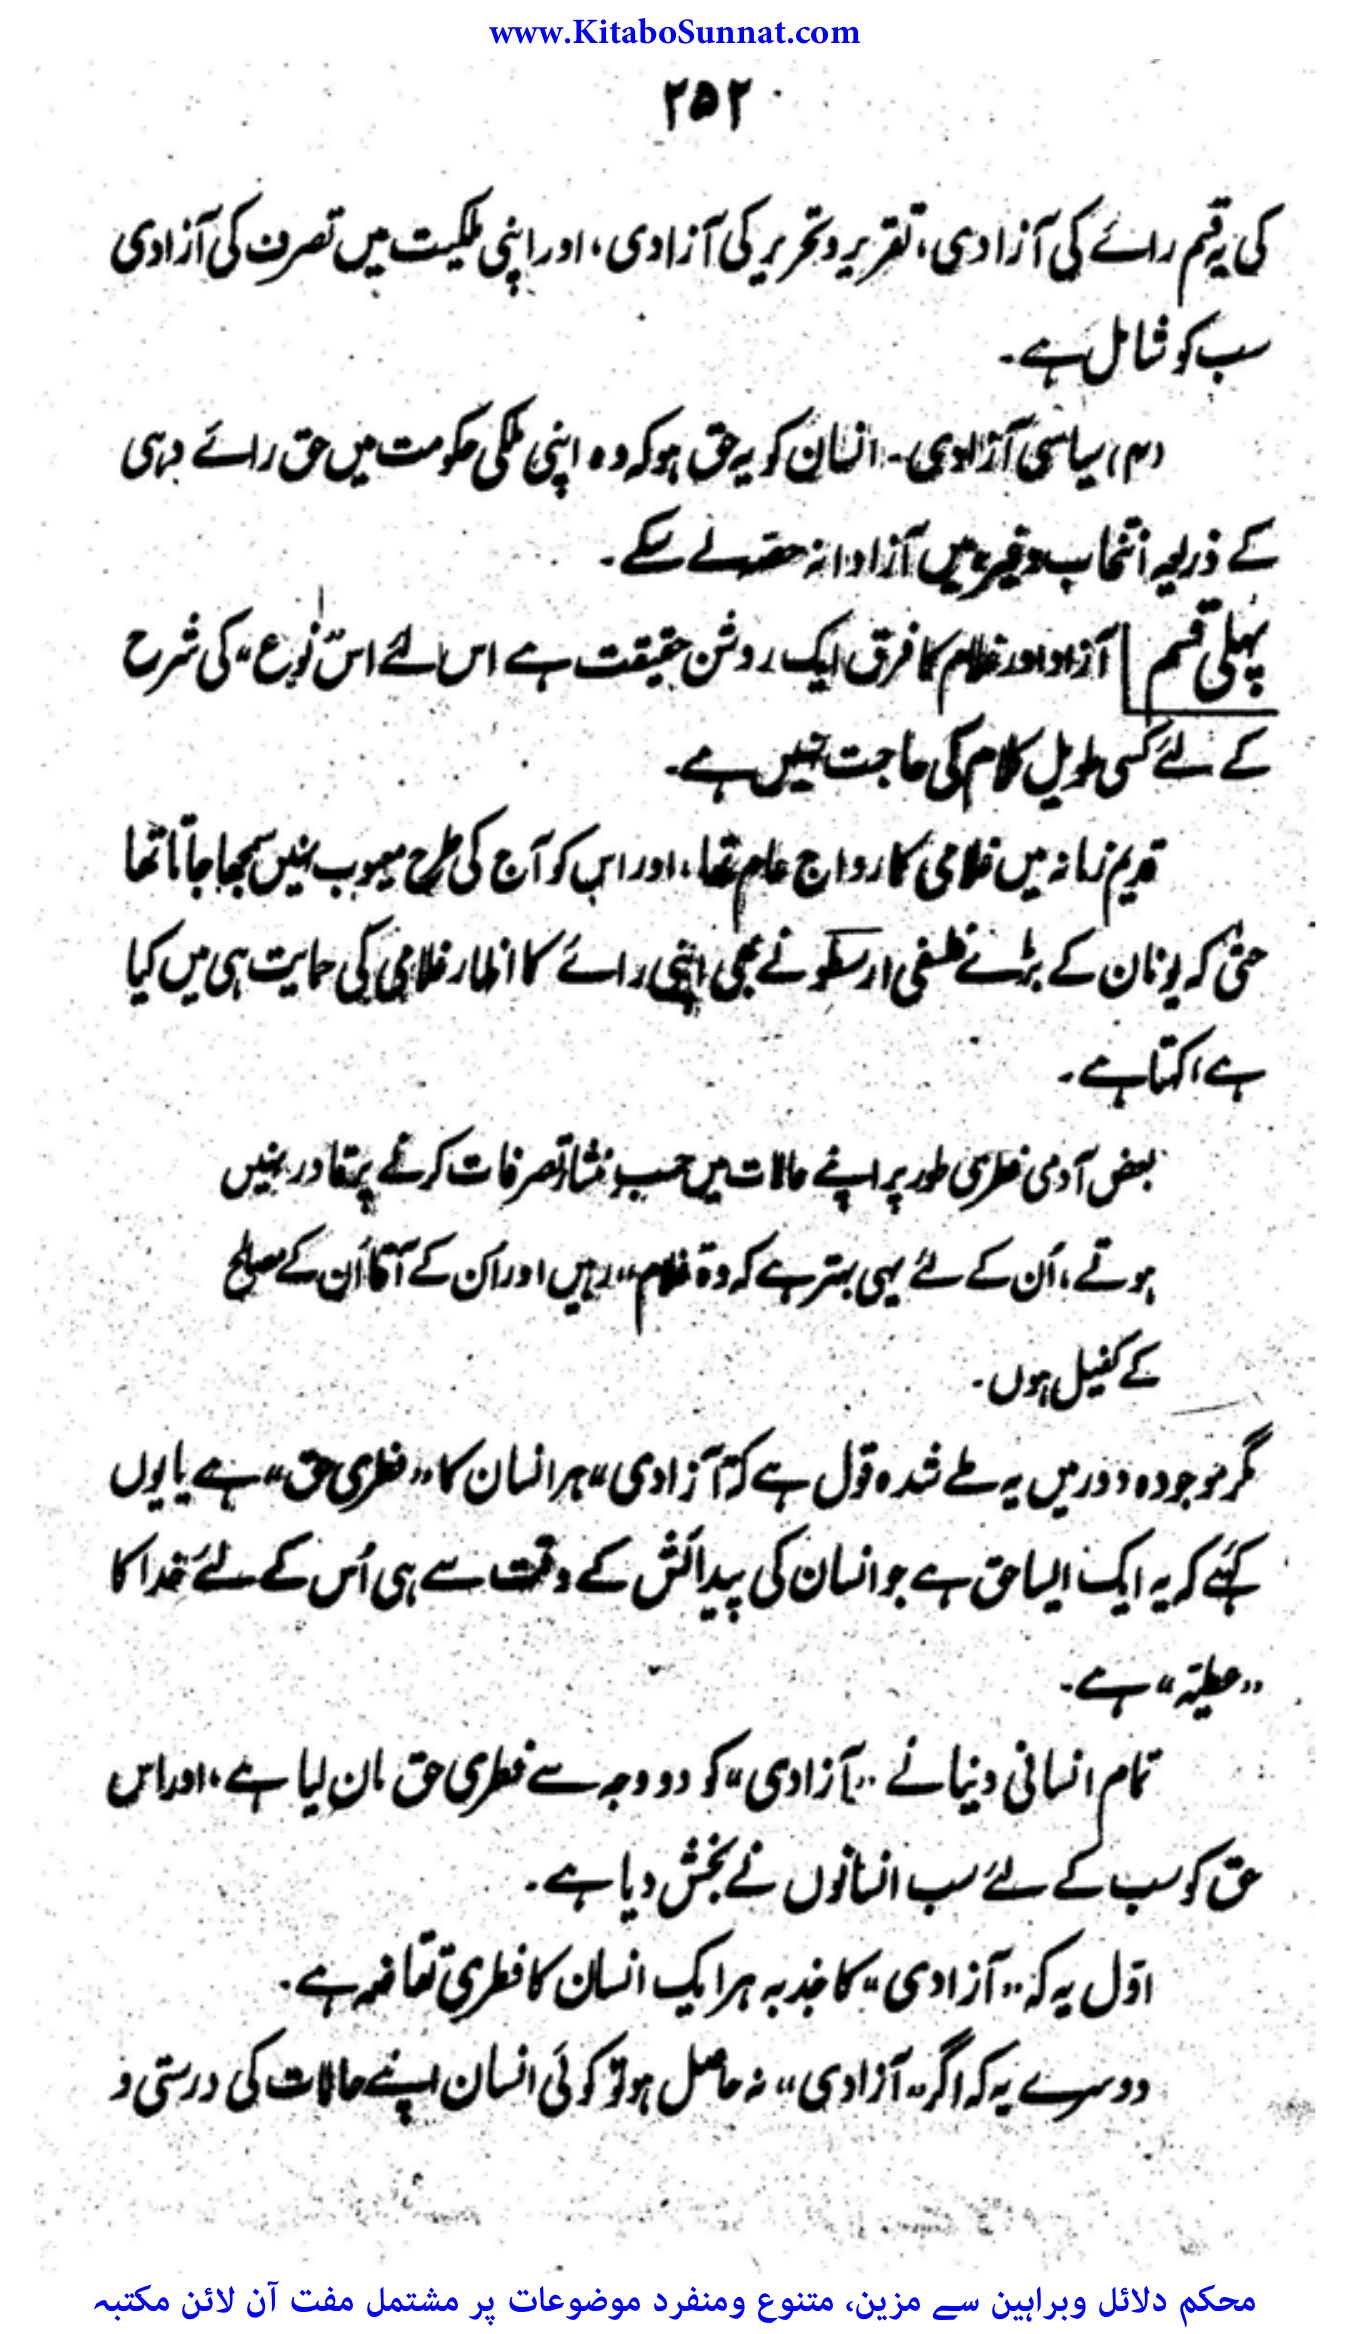 www.KitaboSunnat.com
۲۵۲
کی یہ قسم رائے کی آزادی، تقریر و تحریر کی آزادی، اور اپنی ملکیت میں تصرف کی آزادی
سب کو شامل ہے۔
(۴) سیاسی آزادی۔ انسان کو یہ حق ہو کہ وہ اپنی ملکی حکومت میں حق رائے دہی
کے ذریعہ انتخاب وغیرہ میں آزادانہ حصہ لے سکے۔
پہلی قسم آزاد اور غلام کا فرق ایک روشن حقیقت ہے اس لئے اس "نوع" کی شرح
کے لئے کسی طویل کلام کی حاجت نہیں ہے۔
قدیم زمانہ میں غلامی کا رواج عام تھا، اور اس کو آج کی طرح معیوب نہیں سمجھا جاتا تھا
حتیٰ کہ یونان کے بڑے فلسفی ارسطو نے بھی اپنی رائے کا اظہار غلامی کی حمایت ہی میں کیا
ہے، کہتا ہے۔
بعض آدمی فطری طور پر اپنے حالات میں حسبِ منشا تصرفات کرنے پر قادر نہیں
ہوتے، اُن کے لئے یہی بہتر ہے کہ وہ "غلام" رہیں اور اُن کے آقا اُن کے مصالح
کے کفیل ہوں۔
مگر موجودہ دور میں یہ طے شدہ قول ہے کہ "آزادی" ہر انسان کا "فطری حق" ہے یا یوں
کہئے کہ یہ ایک ایسا حق ہے جو انسان کی پیدائش کے وقت سے ہی اُس کے لئے خدا کا
"عطیہ" ہے۔
تمام انسانی دنیا نے "آزادی" کو دو وجہ سے فطری حق مان لیا ہے، اور اس
حق کو سب کے لئے سب انسانوں نے بخش دیا ہے۔
اوّل یہ کہ "آزادی" کا جذبہ ہر ایک انسان کا فطری تقاضہ ہے۔
دوسرے یہ کہ اگر "آزادی" نہ حاصل ہو تو کوئی انسان اپنے حالات کی درستی و
محکم دلائل وبراہین سے مزین، متنوع ومنفرد موضوعات پر مشتمل مفت آن لائن مکتبہ